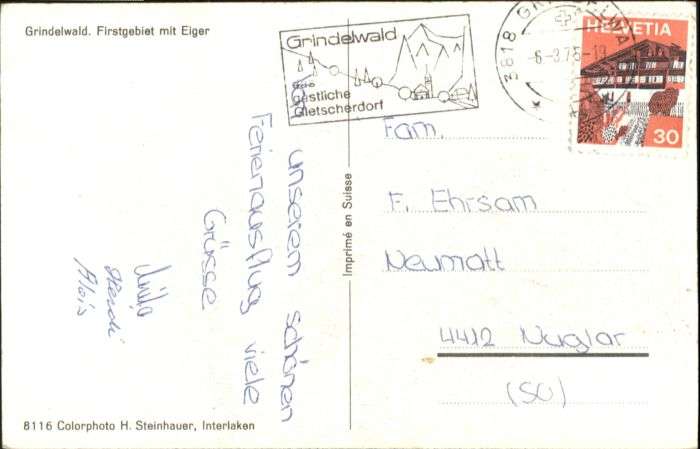 Grindelwald. Firstgebiet mit Eiger
Grindelwald
das
gastliche
Gletscherdorf
3818 GRINDELWALD
-6.-3.75-19
HELVETIA
30
Von unserem schönen
Ferienausflug viele
Grüsse
Heidi
Alois
Imprimé en Suisse
Fam.
F. Ehrsam
Neumatt
4412 Nuglar
(SO)
8116 Colorphoto H. Steinhauer, Interlaken